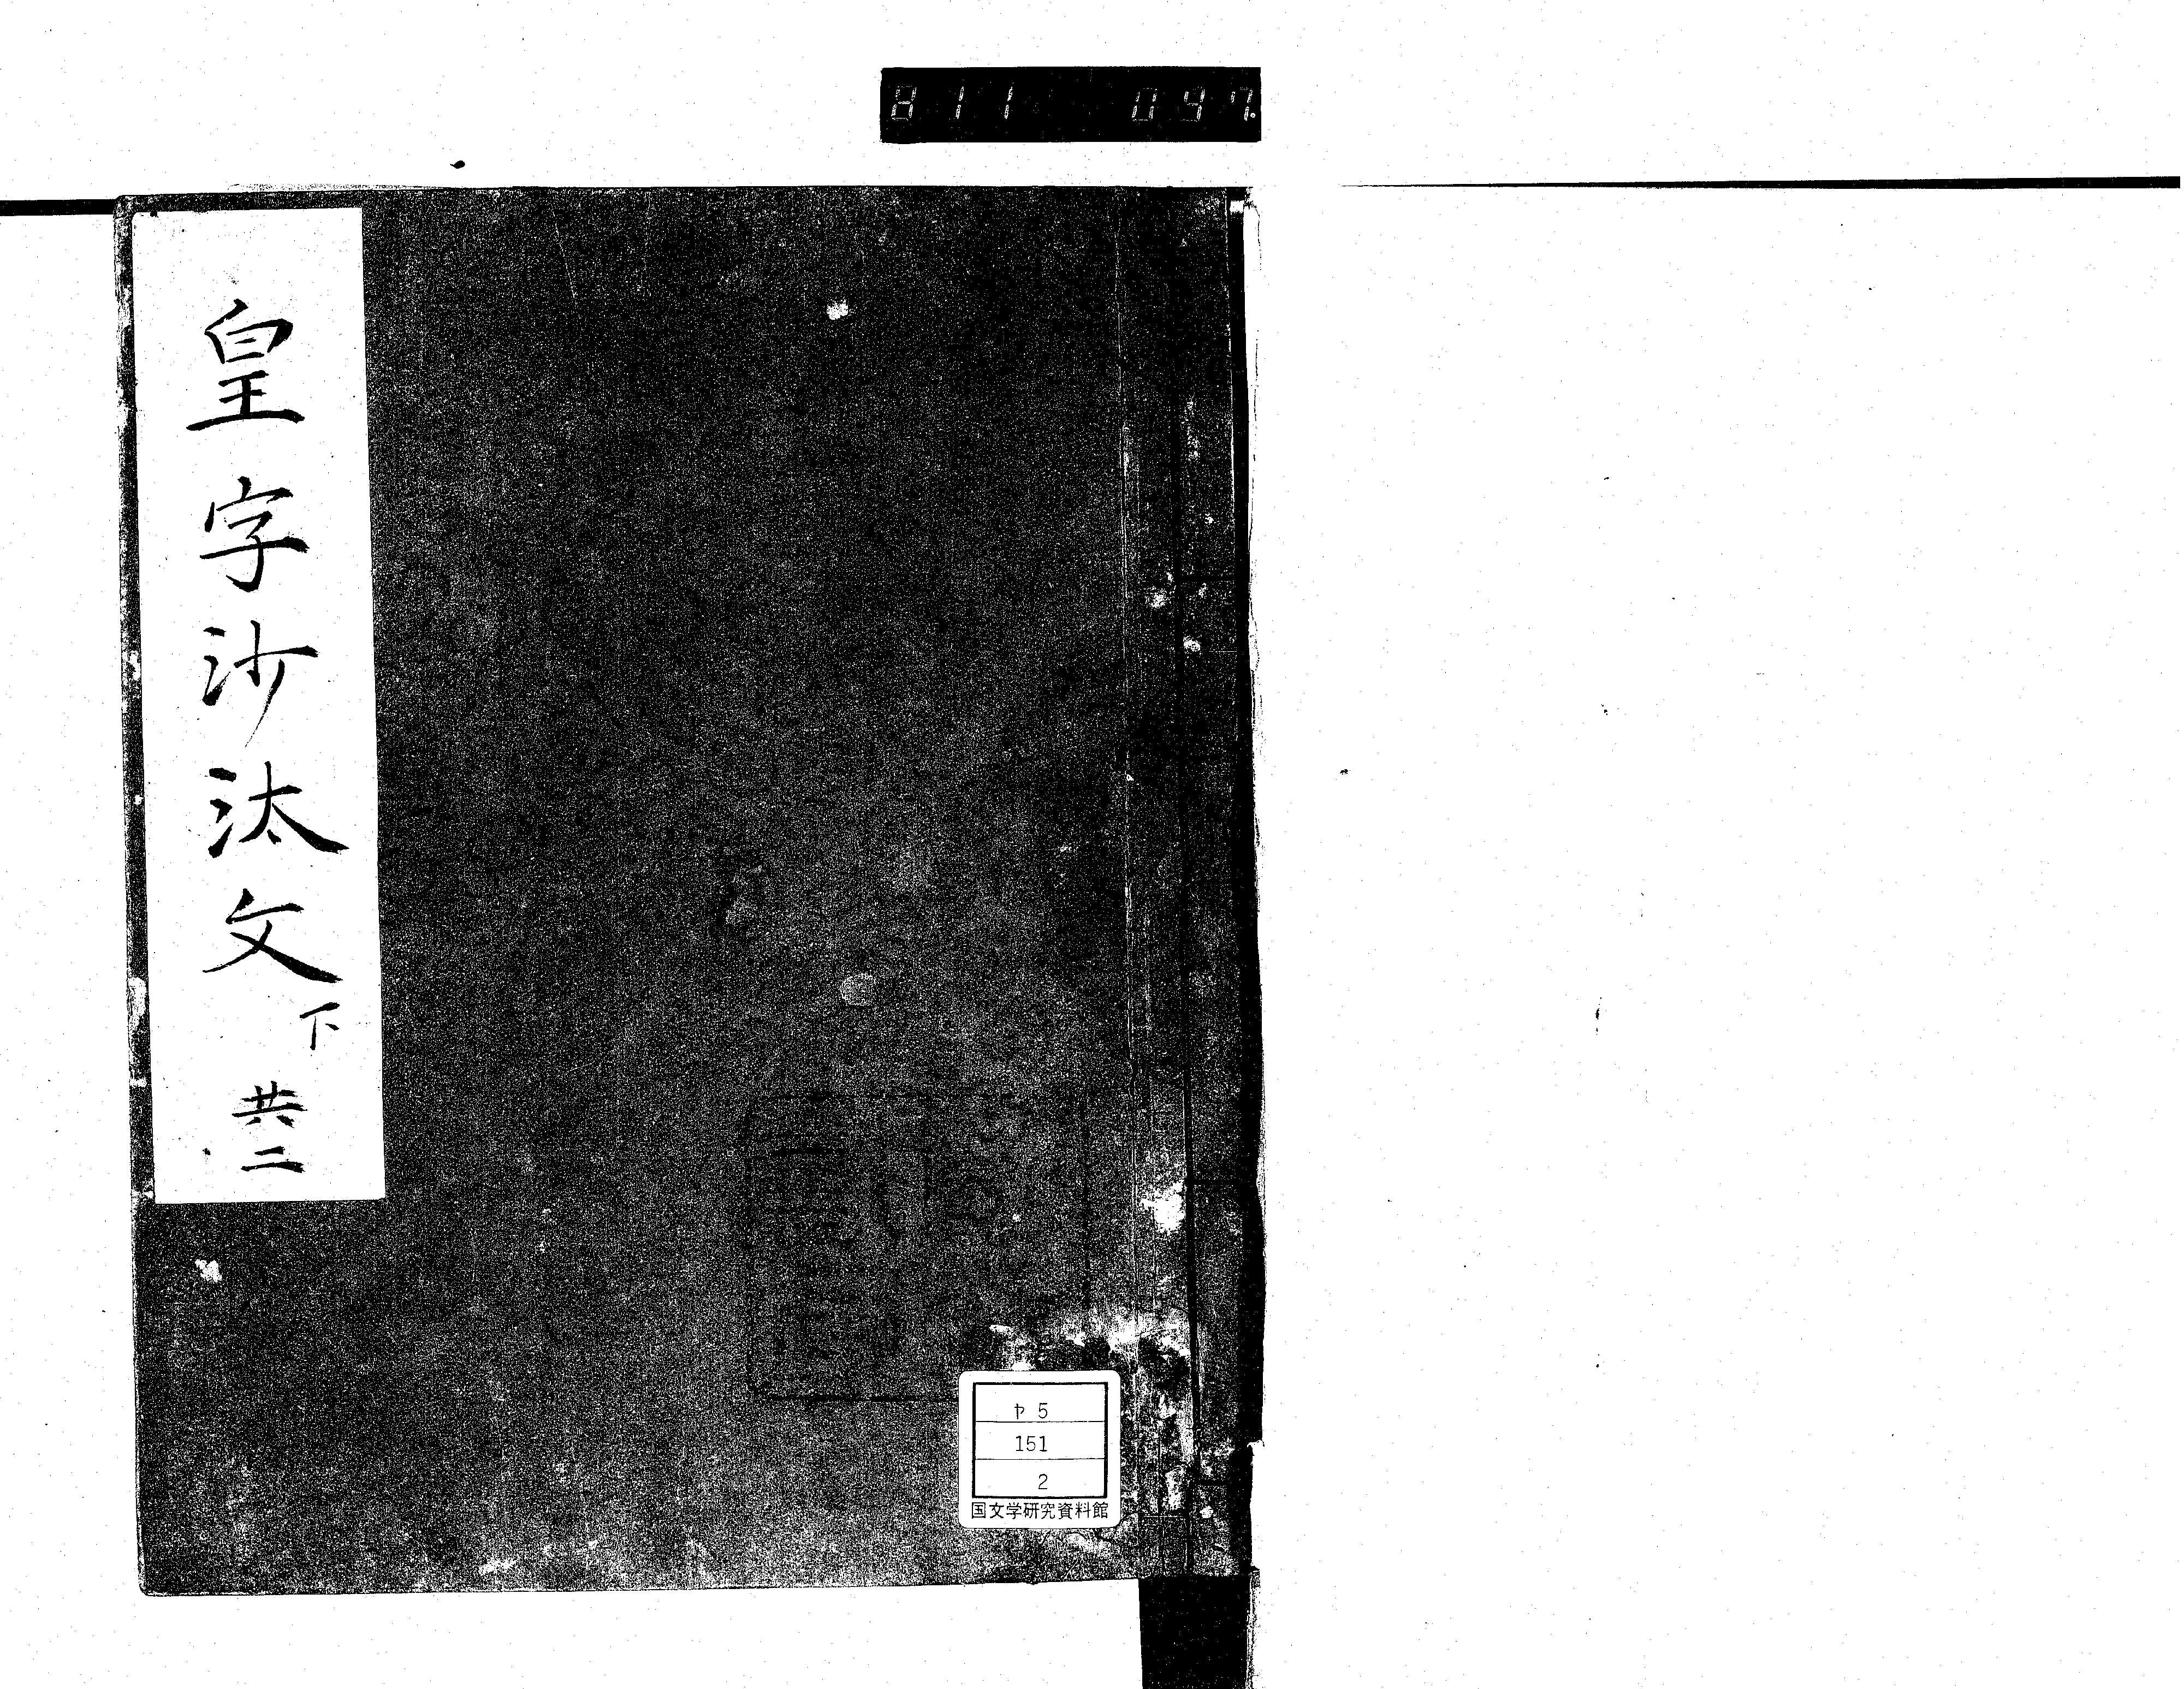 811 047.
皇字沙汰文下
共二
ヤ5
151
2
国文学研究資料館